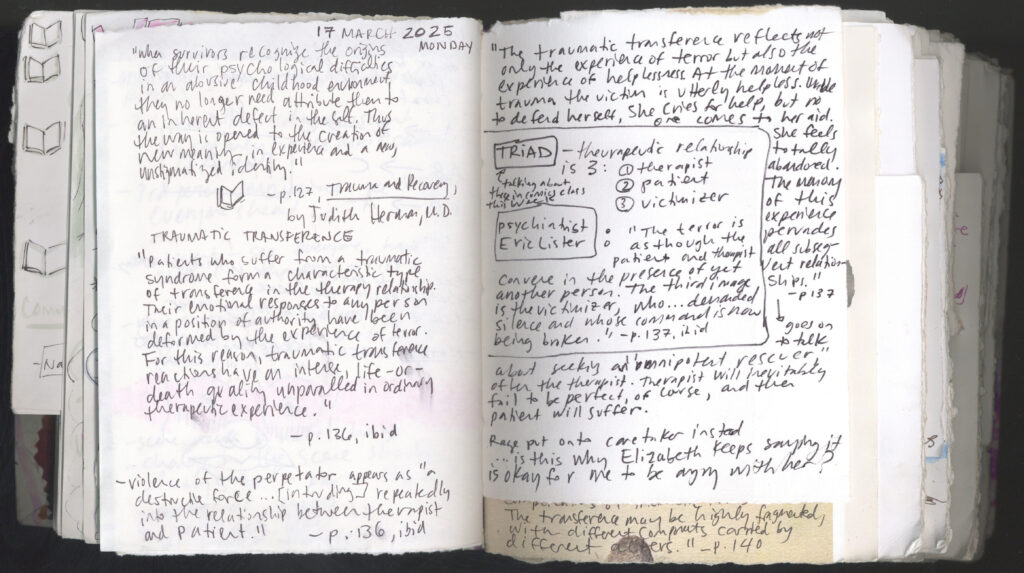 17 MARCH 2025
MONDAY
"When survivors recognize the origins
of their psychological difficulties
in an abusive childhood environment
they no longer need attribute them to
an inherent defect in the self. Thus
the way is opened to the creation of
new meaning in experience and a new,
unstigmatized identity."
- p.127, Trauma and Recovery,
by Judith Herman, M.D.
TRAUMATIC TRANSFERENCE
"Patients who suffer from a traumatic
syndrome form a characteristic type
of transference in the therapy relationship.
Their emotional responses to any person
in a position of authority have been
deformed by the experience of terror.
For this reason, traumatic transference
reactions have an intense, life-or-
death quality unparalled in ordinary
therapeutic experience."
- p. 136, ibid
- violence of the perpetator appears as "a
destructive force ... [intruding] repeatedly
into the relationship between therapist
and patient." - p. 136, ibid
"The traumatic transference reflects not
only the experience of terror but also the
experience of helplessness. At the moment of
trauma the victim is utterly helpless. Unable
to defend herself, she cries for help, but no
one comes to her aid.
She feels
totally
abandoned.
The memory
of this
experience
pervades
all subseq-
uent relation-
ships."
- p.137
TRIAD - therapeutic relationship
is 3: ① therapist
② patient
③ victimizer
talking about
these in comics class
this week
psychiatrist
Eric Lister
"The terror is
as though the
patient and therapist
convene in the presence of yet
another person. The third image
is the victimizer, who ... demanded
silence and whose command is now
being broken." - p.137, ibid
goes on
to talk
about seeking an "omnipotent rescuer,"
often the therapist. Therapist will inevitably
fail to be perfect, of course, and then
patient will suffer.
Rage put onto caretaker instead
... is this why Elizabeth keeps saying it
is okay for me to be angry with her?
The transference may be highly fragmented,
with different components carried by
different." - p. 140